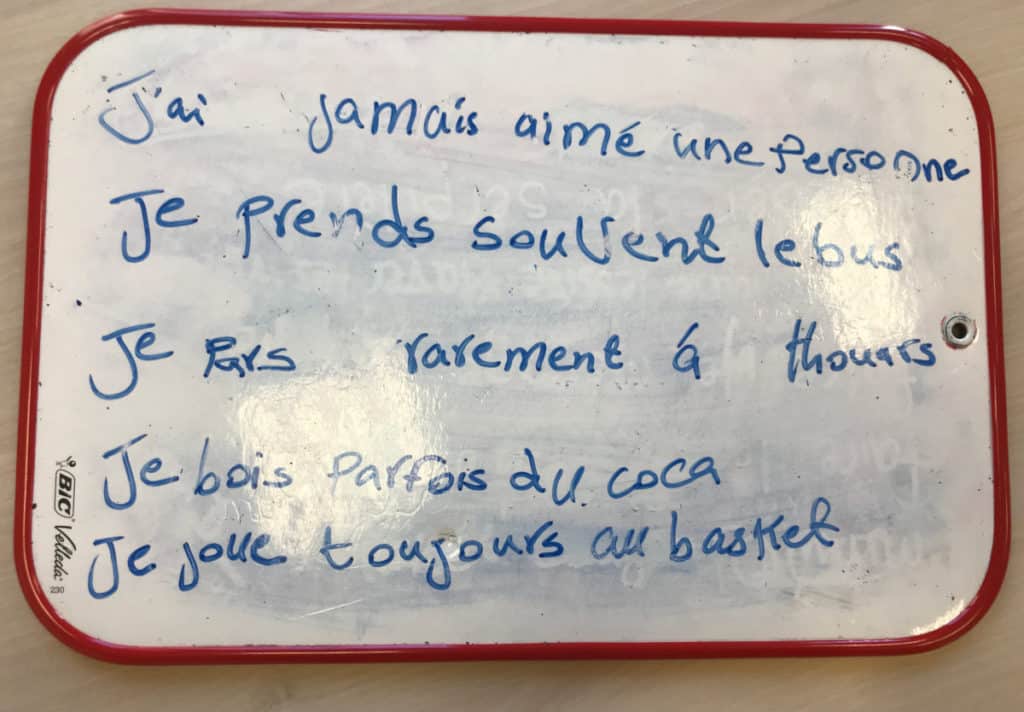 J'ai jamais aimé une personne
Je prends souvent le bus
Je Pars rarement á thouars
Je bois Parfois du coca
Je joue toujours au basket
BIC Velleda